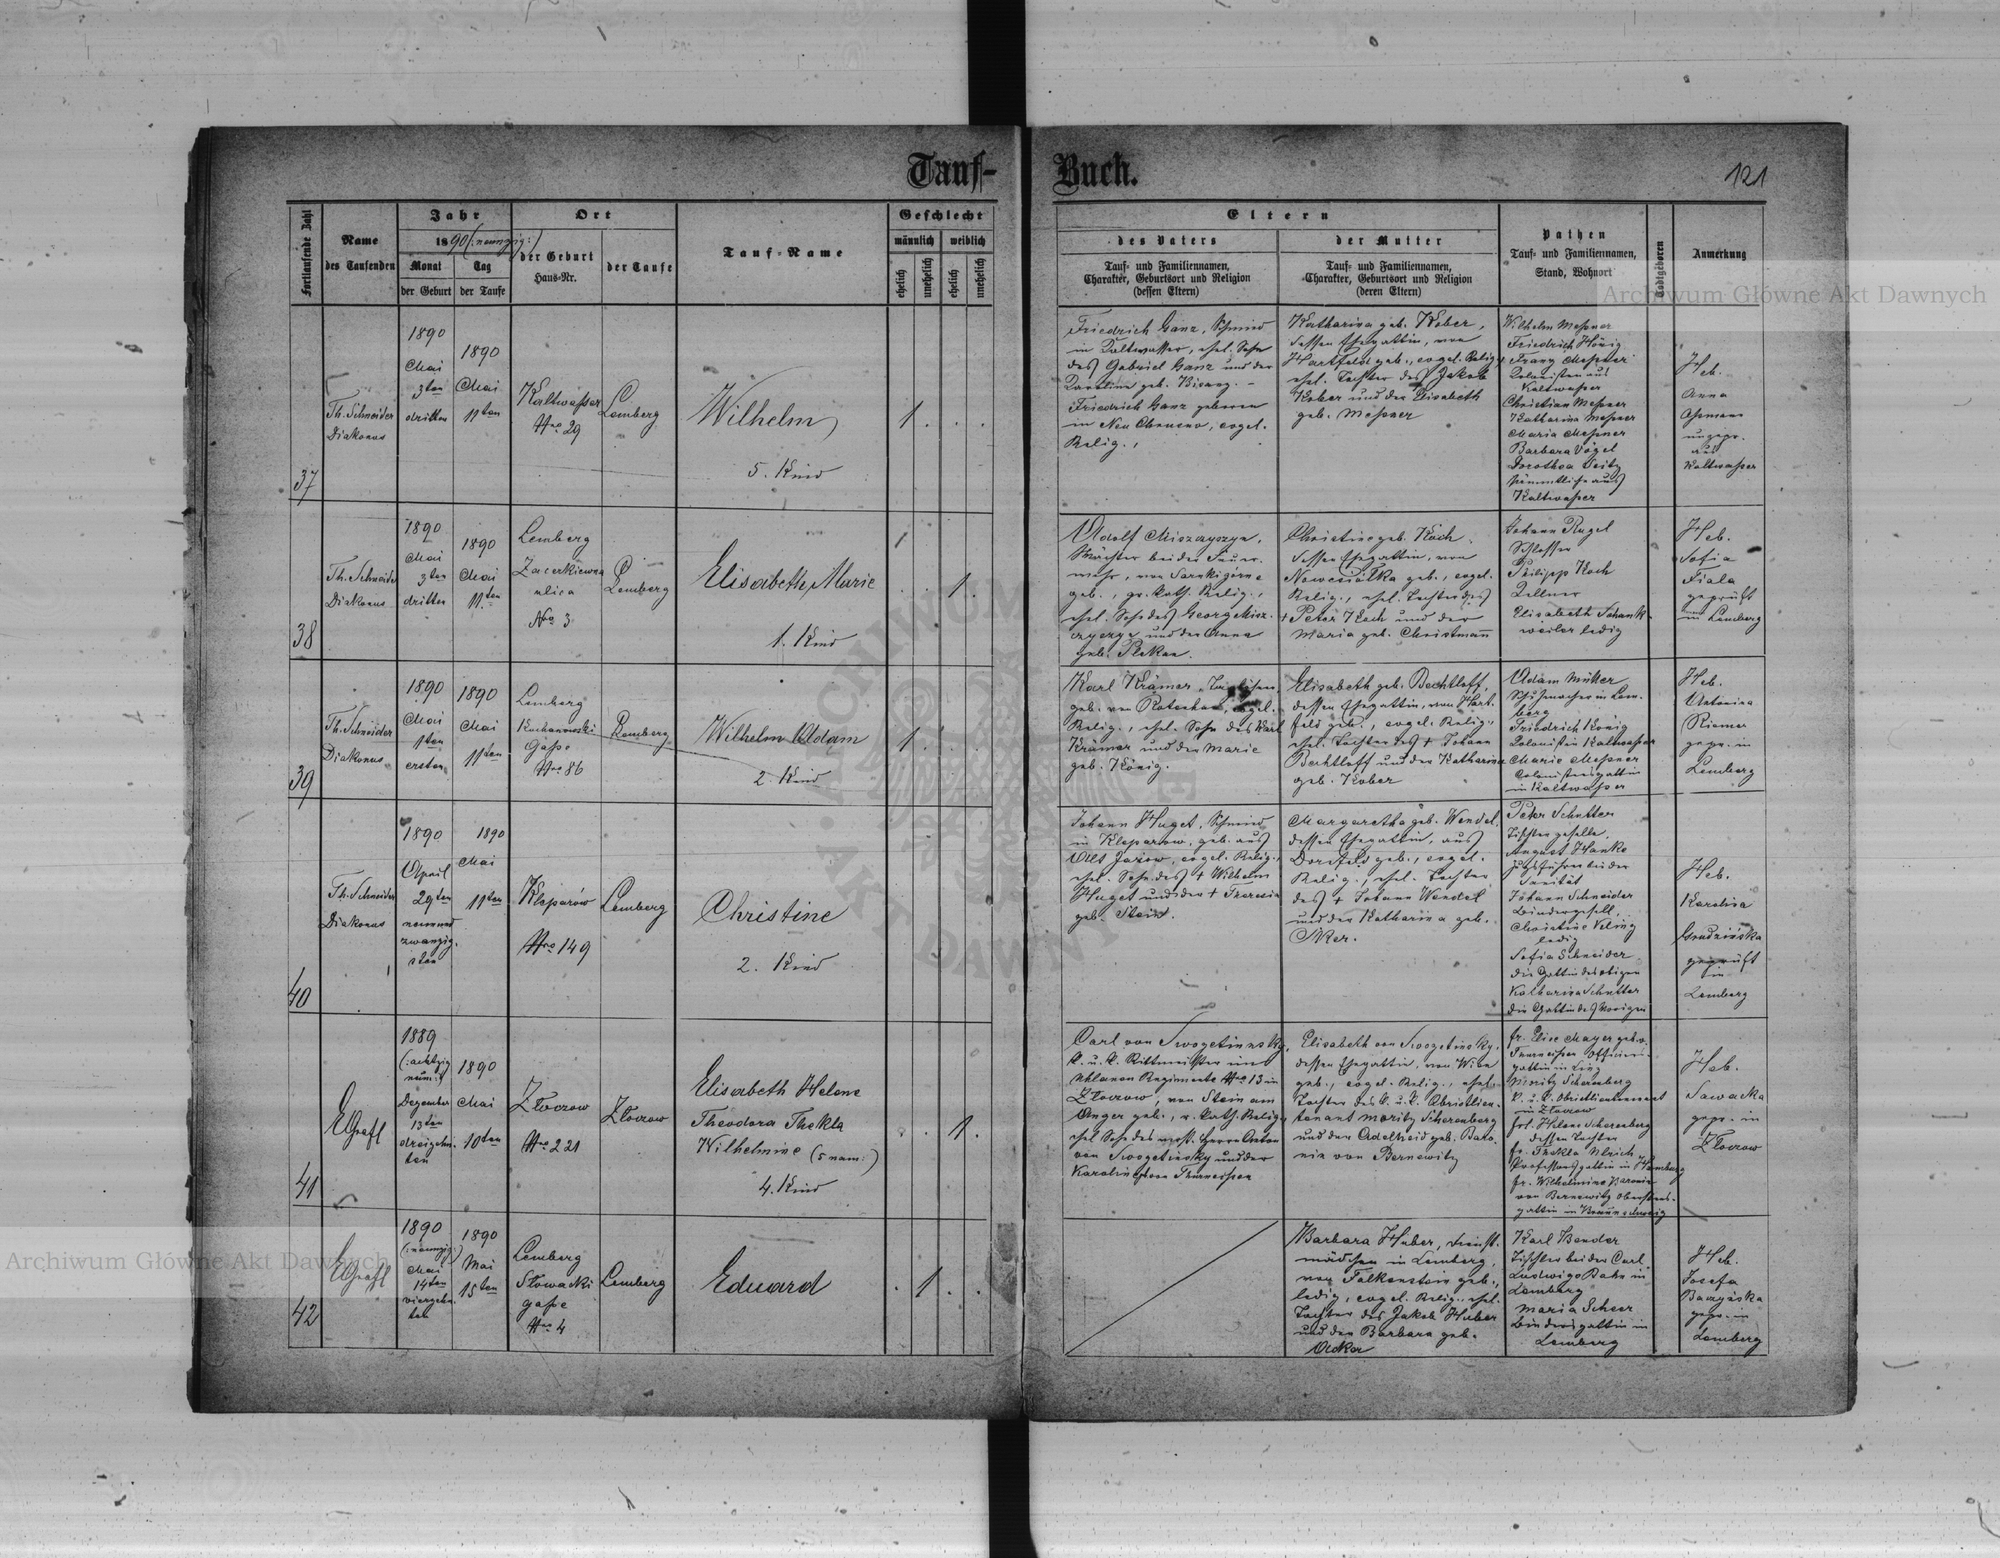 Tauf-
Buch.
121
Fortlaufende Zahl
Name
des Taufenden
Jahr
1890 (:neunzig:)
Monat
der Geburt
Tag
der Taufe
Ort
der Geburt
Haus-Nr.
der Taufe
Tauf-Name
Geschlecht
männlich
weiblich
ehelich
unehelich
ehelich
unehelich
Eltern
des Vaters
Tauf- und Familiennamen,
Charakter, Geburtsort und Religion
(dessen Eltern)
der Mutter
Tauf- und Familiennamen,
Charakter, Geburtsort und Religion
(deren Eltern)
Pathen
Tauf- und Familiennamen,
Stand, Wohnort
Todtgeboren
Anmerkung
37
Th. Schneider
Diakonus
1890
Mai
3ten
dritten
1890
Mai
11ten
Kaltwasser
Nro 29
Lemberg
Wilhelm
5. Kind
1
Friedrich Ganz, Schmied
in Kaltwasser, ehel. Sohn
des Gabriel Ganz und der
Karoline geb.
Friedrich Ganz geboren
in Neu Chrusno, evgel.
Relig.,
Katharina geb. Kober,
dessen Ehegattin, von
Hartfeld geb., evgel. Relig.,
ehel. Tochter des Jakob
Kober und der Elisabeth
geb. Messner
Wilhelm Messner
Friedrich König
Franz Messner
Kolonisten aus
Kaltwasser
Christian Messner
Katharina Messner
Maria Messner
Barbara Vogel
Dorothea Seitz
sämmtliche aus
Kaltwasser
Heb.
Anna
ungepr.
aus
Kaltwasser
38
Th. Schneider
Diakonus
1890
Mai
3ten
dritten
1890
Mai
11ten
Lemberg
Zacerkiewna
ulica
Nro 3
Lemberg
Elisabeth Marie
1. Kind
1
Adolf Miszczyszyn,
Wächter bei der Feuer-
wehr, von Sarnkigórne
geb., gr. kath. Relig.,
ehel. Sohn des Georg Misz-
czyszyn und der Anna
geb.
Christine geb. Koch,
dessen Ehegattin, von
Nowesiółka geb., evgel.
Relig., ehel. Tochter des
+ Peter Koch und der
Maria geb. Christmann
Johann Rugel
Schlosser
Philipp Koch
Kellner
Elisabeth Schank-
weiler ledig
Heb.
Sofia
Fiala
geprüft
in Lemberg
39
Th. Schneider
Diakonus
1890
Mai
1ten
ersten
1890
Mai
11ten
Lemberg
Kochanowski
Gasse
Nro 86
Lemberg
Wilhelm Adam
2. Kind
1
Karl Krämer,
geb. von evgel.
Relig., ehel. Sohn des Karl
Krämer und der Marie
geb. König.
Elisabeth geb. Bechtloff
dessen Ehegattin, von Hart-
feld geb., evgel. Relig.,
ehel. Tochter des + Johann
Bechtloff und der Katharina
geb. Kober
Adam Müller
Schuhmacher in Lem-
berg
Friedrich König
Kolonist in Kaltwasser
Marie Messner
Colonistensgattin
in Kaltwasser
Heb.
Antonina
Riemer
gepr. in
Lemberg
40
Th. Schneider
Diakonus
1890
April
29ten
neunund
zwanzig-
sten
1890
Mai
11ten
Kleparów
Nro 149
Lemberg
Christine
2. Kind
Johann Huget, Schmied
in Kleparow, geb. aus
Alt Jazow, evgel. Relig.,
ehel. Sohn des + Wilhelm
Huget und der + Theresia
geb. Stein.
Margaretha geb. Wendel,
dessen Ehegattin, aus
Dornfeld geb., evgel.
Relig., ehel. Tochter
des + Johann Wendel
und der Katharina geb.
Peter Schntter
Tischlergeselle,
August Hanke
Zugsführer bei der
Sanität
Johann Schneider
Bindergesell,
Christine Keling
ledig
Sofia Schneider
die Gattin des obigen
Katharina Schntter
die Gattin des vorigen
Heb.
Karolina
Grudzińska
geprüft
in
Lemberg
41
EGrafl
1889
(:achtzig
neun:)
Dezember
13ten
dreizehn-
ten
1890
Mai
10ten
Złoczow
Nro 221
Złoczow
Elisabeth Helene
Theodora Thekla
Wilhelmine (5 nam:)
4. Kind
1
Carl von Swogetinsky,
k. u. k. Rittmeister im
Uhlanen Regimente Nro 13 in
Złoczow, von Stein am
Anger geb., r. kath. Relig.,
ehel. Sohn des Herrn Anton
von Swogetinsky und der
Karoline von Thurneissen
Elisabeth von Swogetinsky,
dessen Ehegattin, von Wien
geb., evgel. Relig., ehel.
Tochter des k. u. k. Obristlieu-
tenant Moritz Scherenberg
und der Adelheid geb. Baro-
nin von Bernewitz
Fr. Elise Mayer geb.
Thurneissen Offiziers-
gattin in Linz
Moritz Scherenberg
k. u. k. Obristlieutenant
in Złoczow
Frl. Helene Scherenberg
dessen Tochter
Fr. Thekla Ulrich
Professorsgattin in Hamburg
Fr. Wilhelmine Baronin
von Bernewitz Oberstens-
gattin in Braunschweig
Heb.
Sawacka
gepr. in
Złoczow
42
EGrafl
1890
(:neunzig:)
Mai
14ten
vierzehn-
ten
1890
Mai
15ten
Lemberg
Słowacki
gasse
Nro 4
Lemberg
Eduard
1
Barbara Huber, Dienst-
mädchen in Lemberg,
von Falkenstein geb.,
ledig, evgel. Relig., ehel.
Tochter des Jakob Huber
und der Barbara geb.
Karl Bender
Tischler bei der Carl
Ludwigs Bahn in
Lemberg
Maria Scheer
Bindersgattin in
Lemberg
Heb.
Josefa
gepr. in
Lemberg
Archiwum Główne Akt Dawnych
Archiwum Główne Akt Dawnych